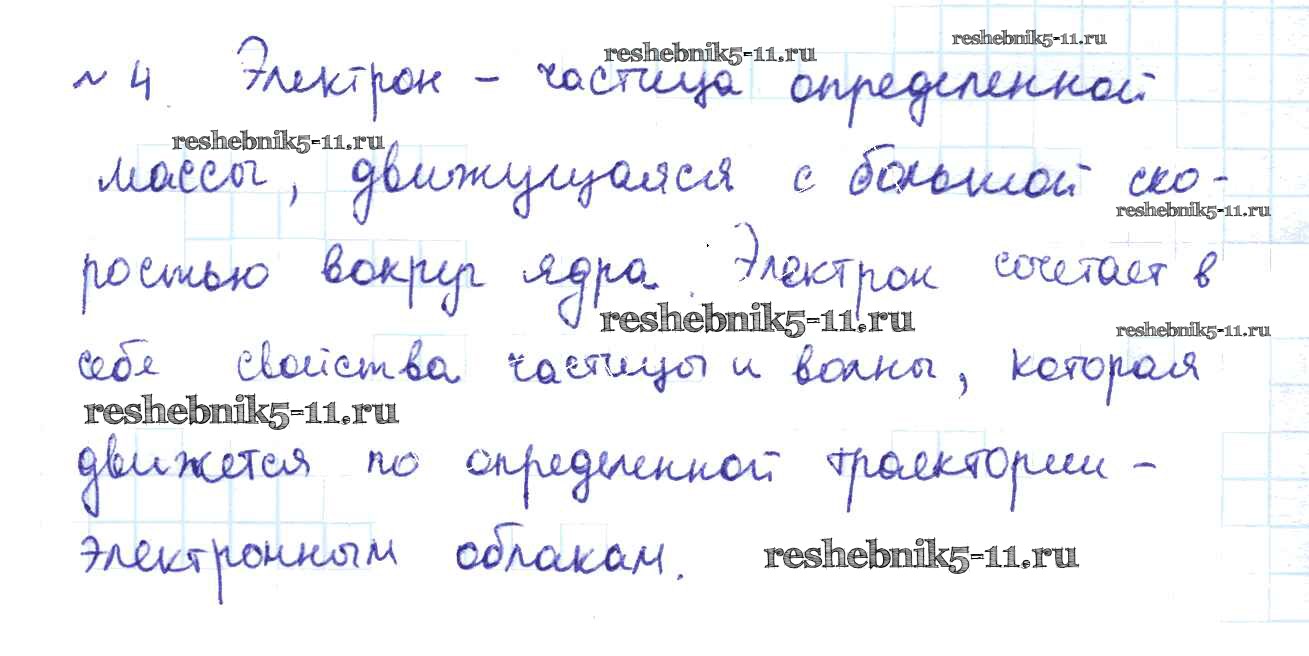 reshebnik5-11.ru
reshebnik5-11.ru
~ 4 Электрон - частица определенной
reshebnik5-11.ru
массы, движущаяся с большой ско-
reshebnik5-11.ru
ростью вокруг ядра. Электрон сочетает в
reshebnik5-11.ru
reshebnik5-11.ru
себе свойства частицы и волны, которая
reshebnik5-11.ru
движется по определенной траектории -
электронным облакам.
reshebnik5-11.ru